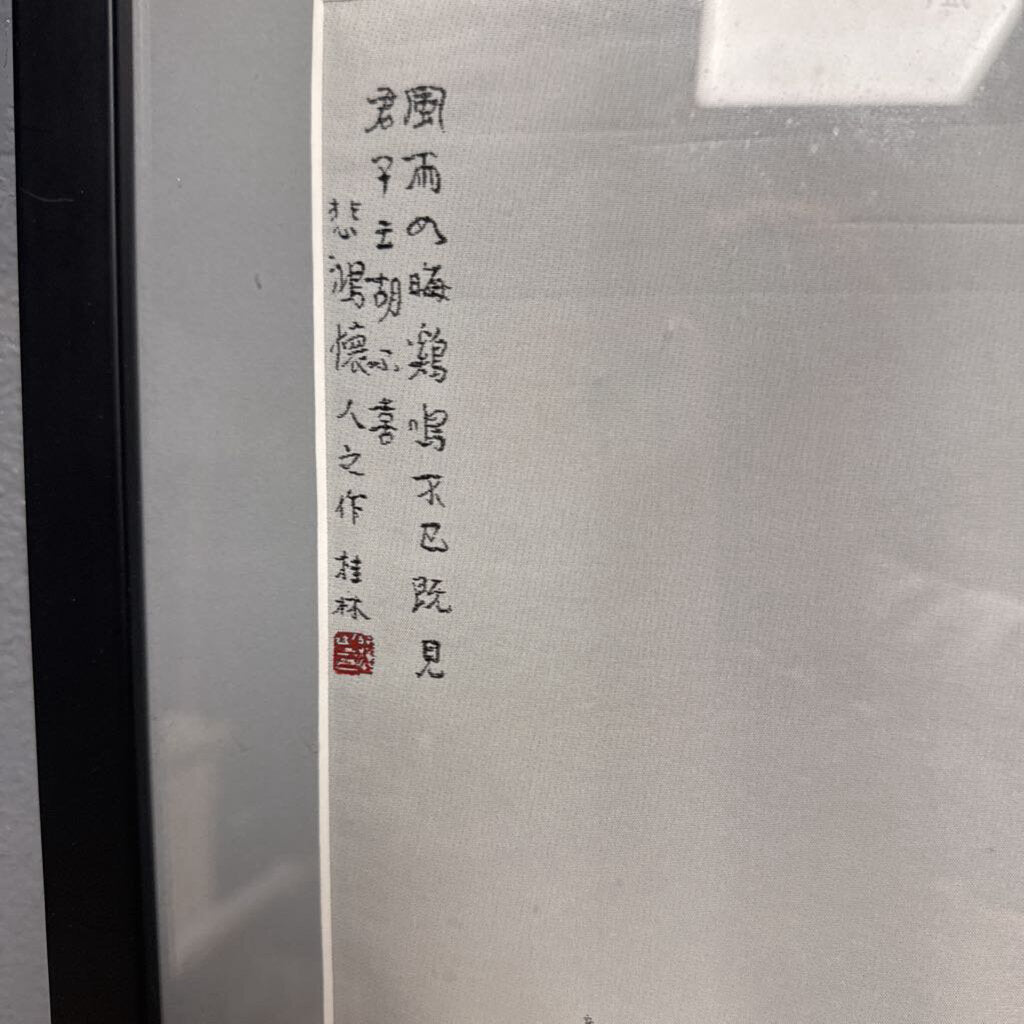 風雨如晦鷄鳴不已既見
君子云胡不喜
悲鴻懷人之作 桂林